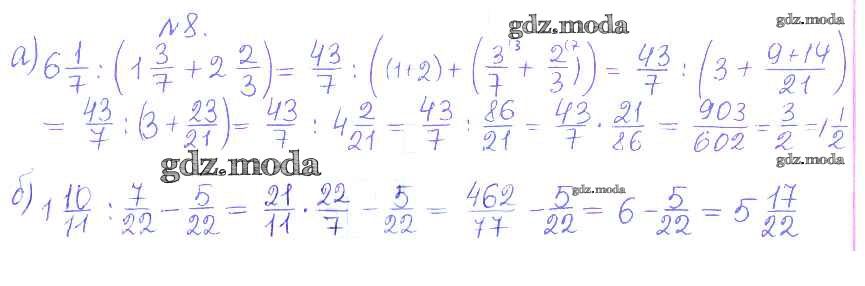 №8.
gdz.moda
gdz.moda
а) 6 1/7 : (1 3/7 + 2 2/3) = 43/7 : ((1+2) + (3/7 (3 + 2/3 (7)) = 43/7 : (3 + 9+14/21)
= 43/7 : (3 + 23/21) = 43/7 : 4 2/21 = 43/7 : 86/21 = 43/7 · 21/86 = 903/602 = 3/2 = 1 1/2
gdz.moda
gdz.moda
б) 1 10/11 : 7/22 - 5/22 = 21/11 · 22/7 - 5/22 = 462/77 - 5/22 = 6 - 5/22 = 5 17/22
gdz.moda